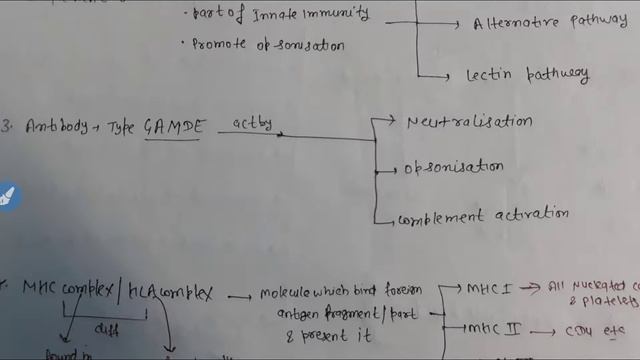 • Part of Innate Immunity
Alternative pathway
• Promote opsonisation
Lectin pathway
3. Antibody → Type GAMDE actby
Neutralisation
Opsonisation
Complement activation
MHC complex / HLA complex → molecule which bind foreign
antigen fragment/part
& present it
diff
MHC I → All Nucleated
& platelets
MHC II → etc